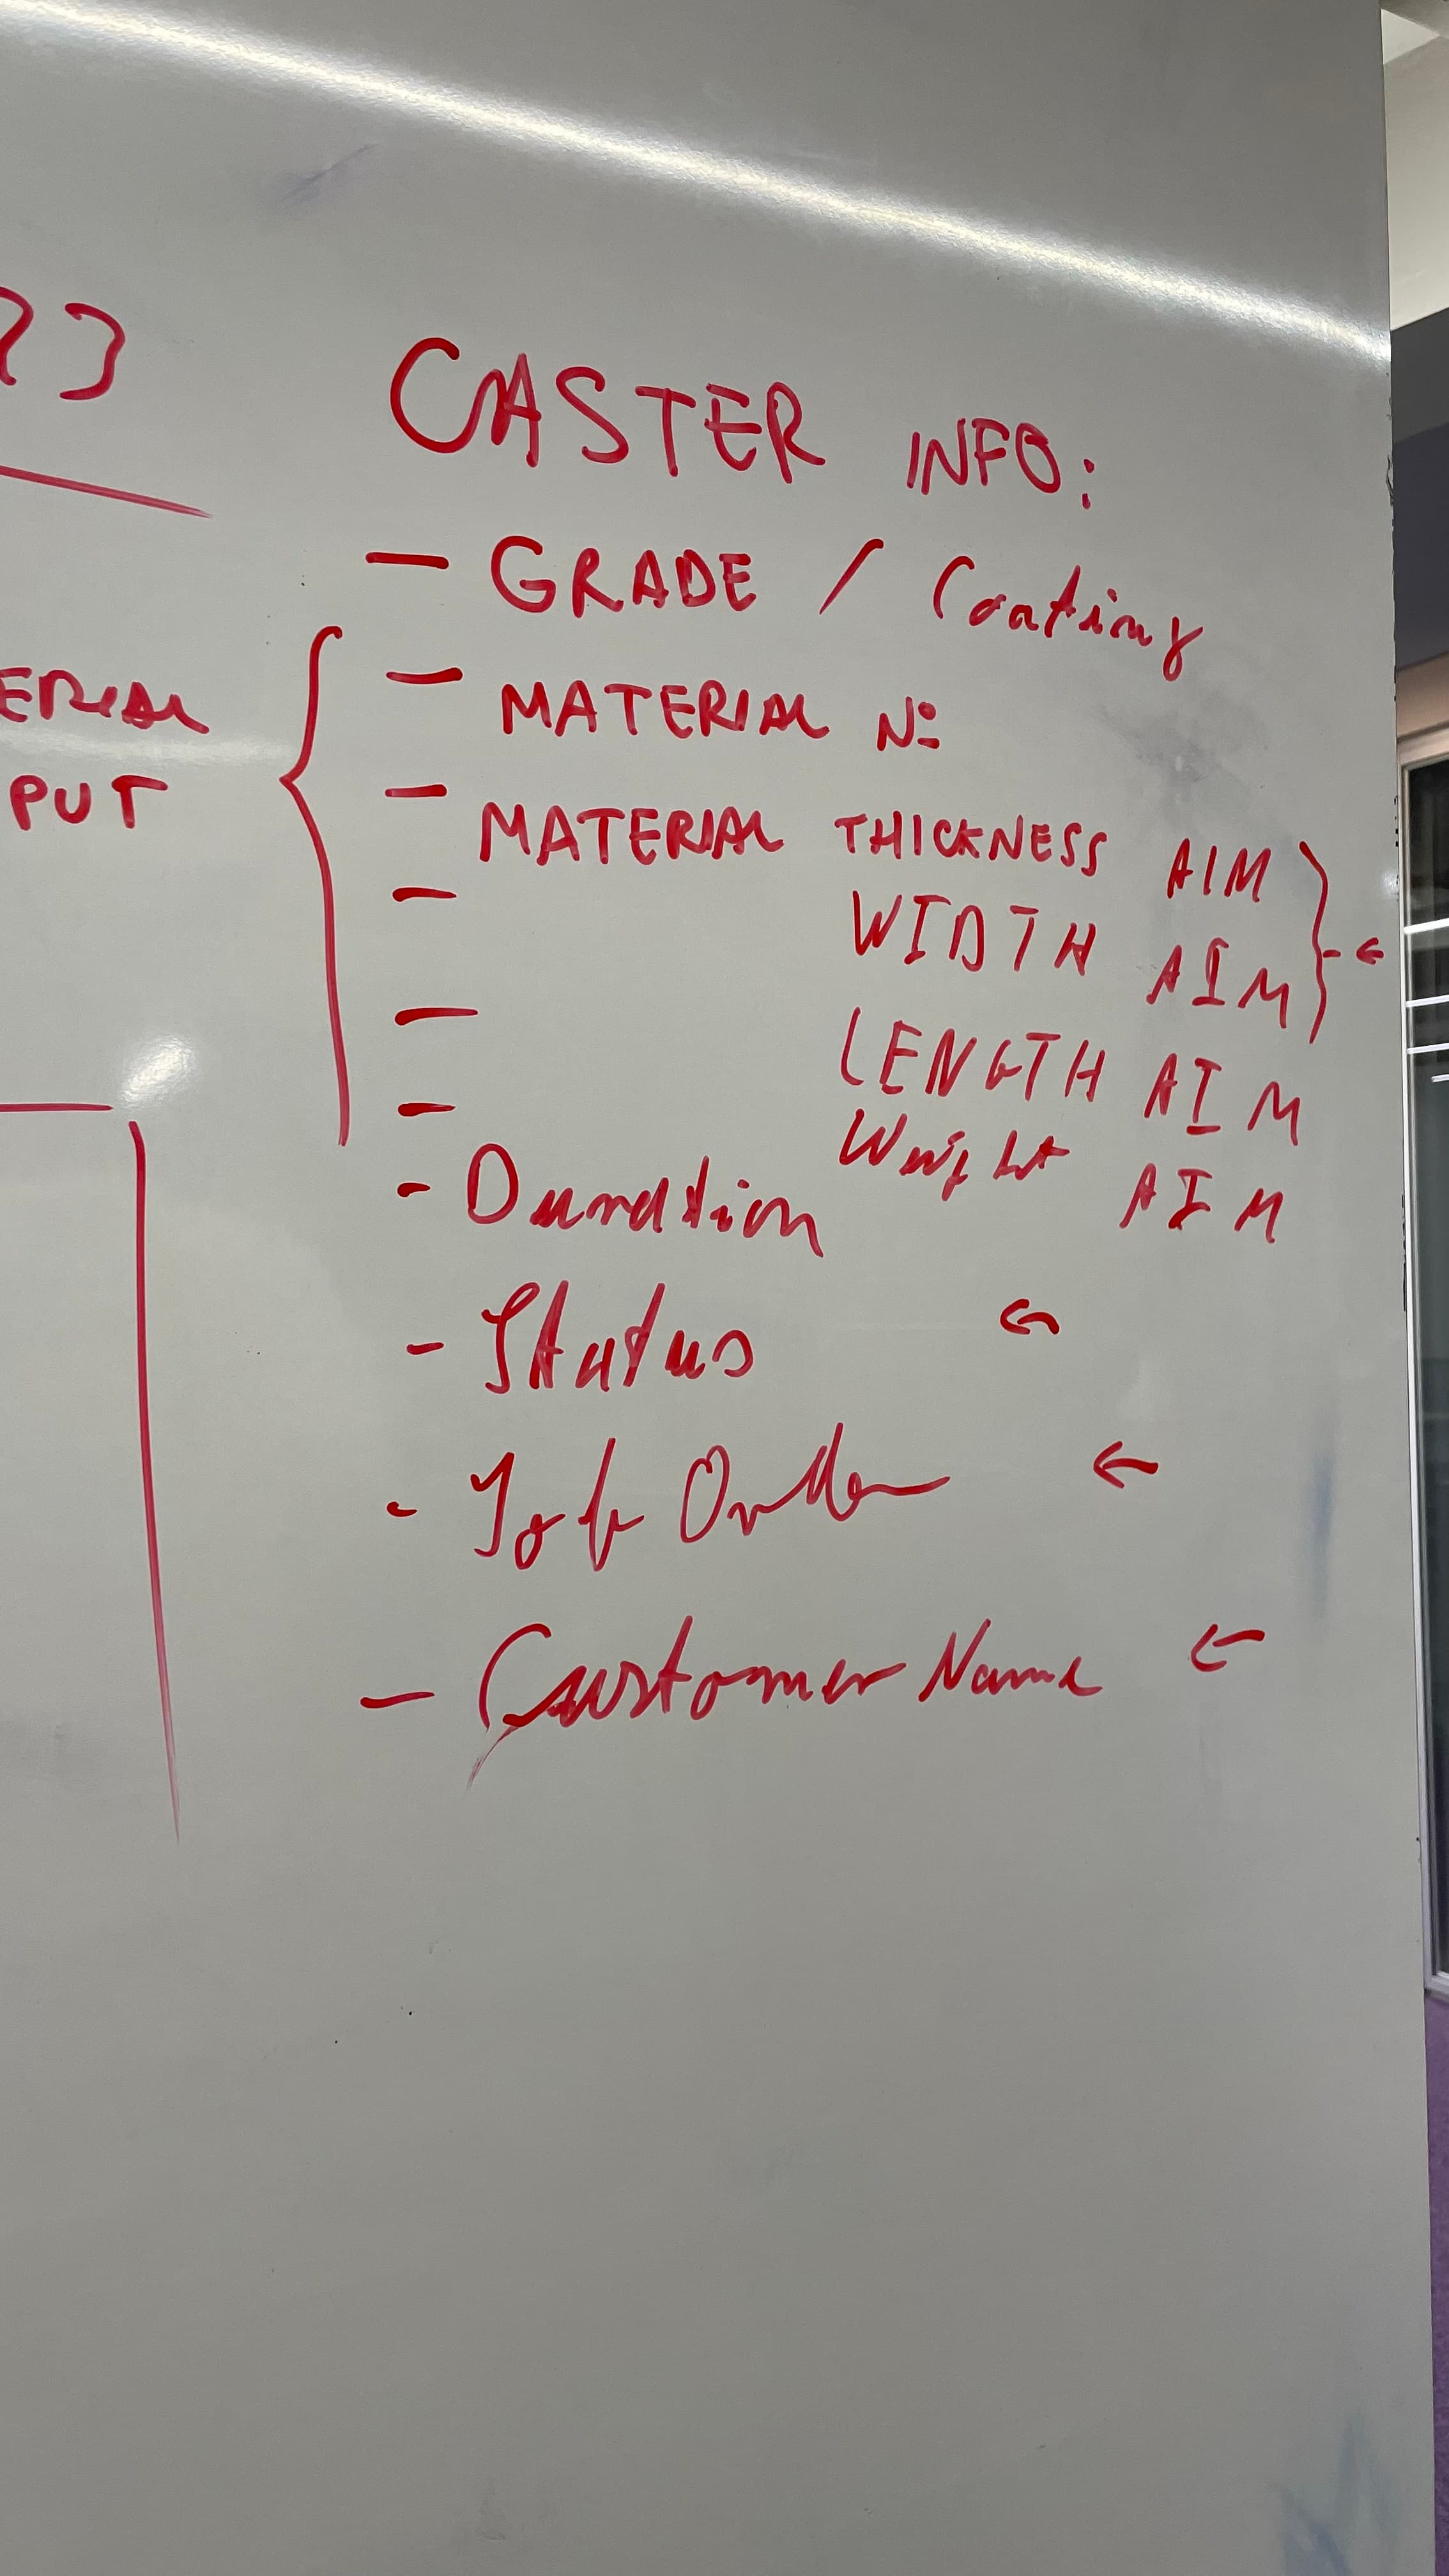 CASTER INFO:
— GRADE / Coating
— MATERIAL Nº
— MATERIAL THICKNESS AIM
— WIDTH AIM
— LENGTH AIM
— Weight AIM
- Duration
- Status ←
- Job Order ←
— Customer Name ←
ERIAL
PUT